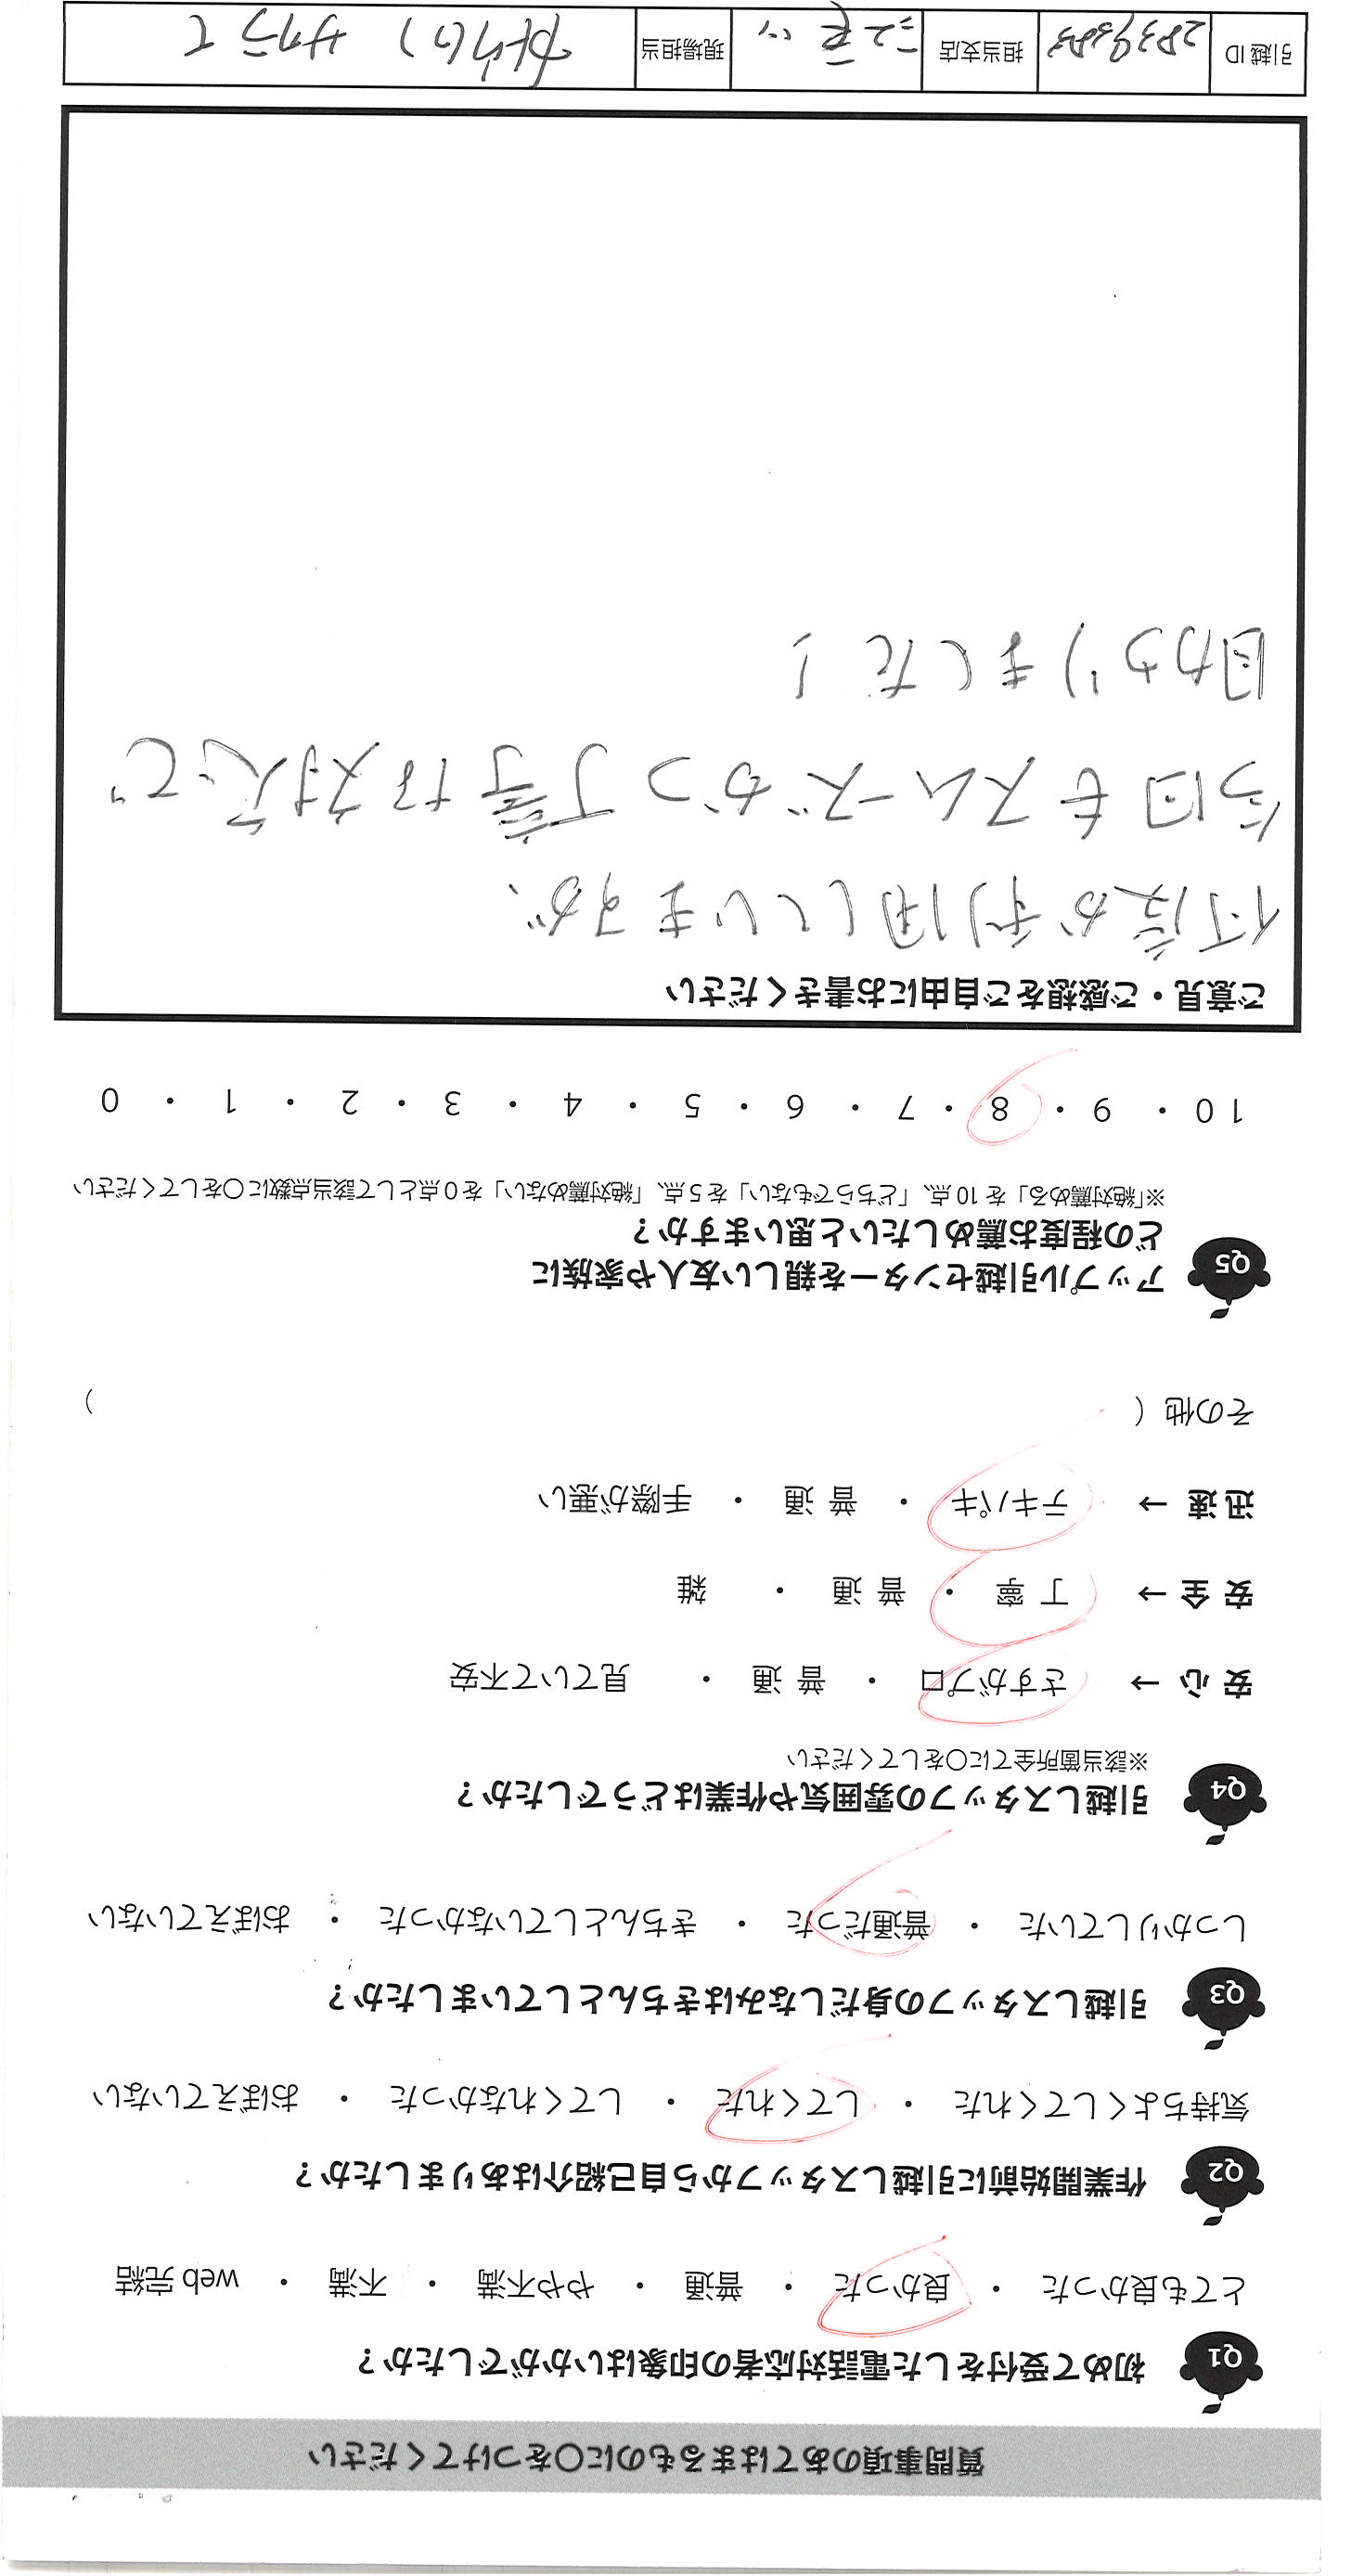 質問事項のあてはまるものに○をつけてください
Q1 初めて受付をした電話対応者の印象はいかがでしたか？
とても良かった ・ 良かった ・ 普通 ・ やや不満 ・ 不満 ・ web 完結
Q2 作業開始前に引越しスタッフから自己紹介はありましたか？
気持ちよくしてくれた ・ してくれた ・ してくれなかった ・ おぼえていない
Q3 引越しスタッフの身だしなみはきちんとしていましたか？
しっかりしていた ・ 普通だった ・ きちんとしていなかった ・ おぼえていない
Q4 引越しスタッフの雰囲気や作業はどうでしたか？
※該当箇所全てに○をしてください
安 心 → さすがプロ ・ 普 通 ・ 見ていて不安
安 全 → 丁 寧 ・ 普 通 ・ 雑
迅 速 → テキパキ ・ 普 通 ・ 手際が悪い
その他（ ）
Q5 アップル引越センターを親しい友人や家族に
どの程度お薦めしたいと思いますか？
※「絶対薦める」を 10 点、「どちらでもない」を 5 点、「絶対薦めない」を 0 点として該当点数に○をしてください
10 ・ 9 ・ 8 ・ 7 ・ 6 ・ 5 ・ 4 ・ 3 ・ 2 ・ 1 ・ 0
ご意見・ご感想をご自由にお書きください
何度か利用していますが、
今回もスムーズかつ丁寧な対応で
助かりました！
引越 ID 担当支店 現場担当